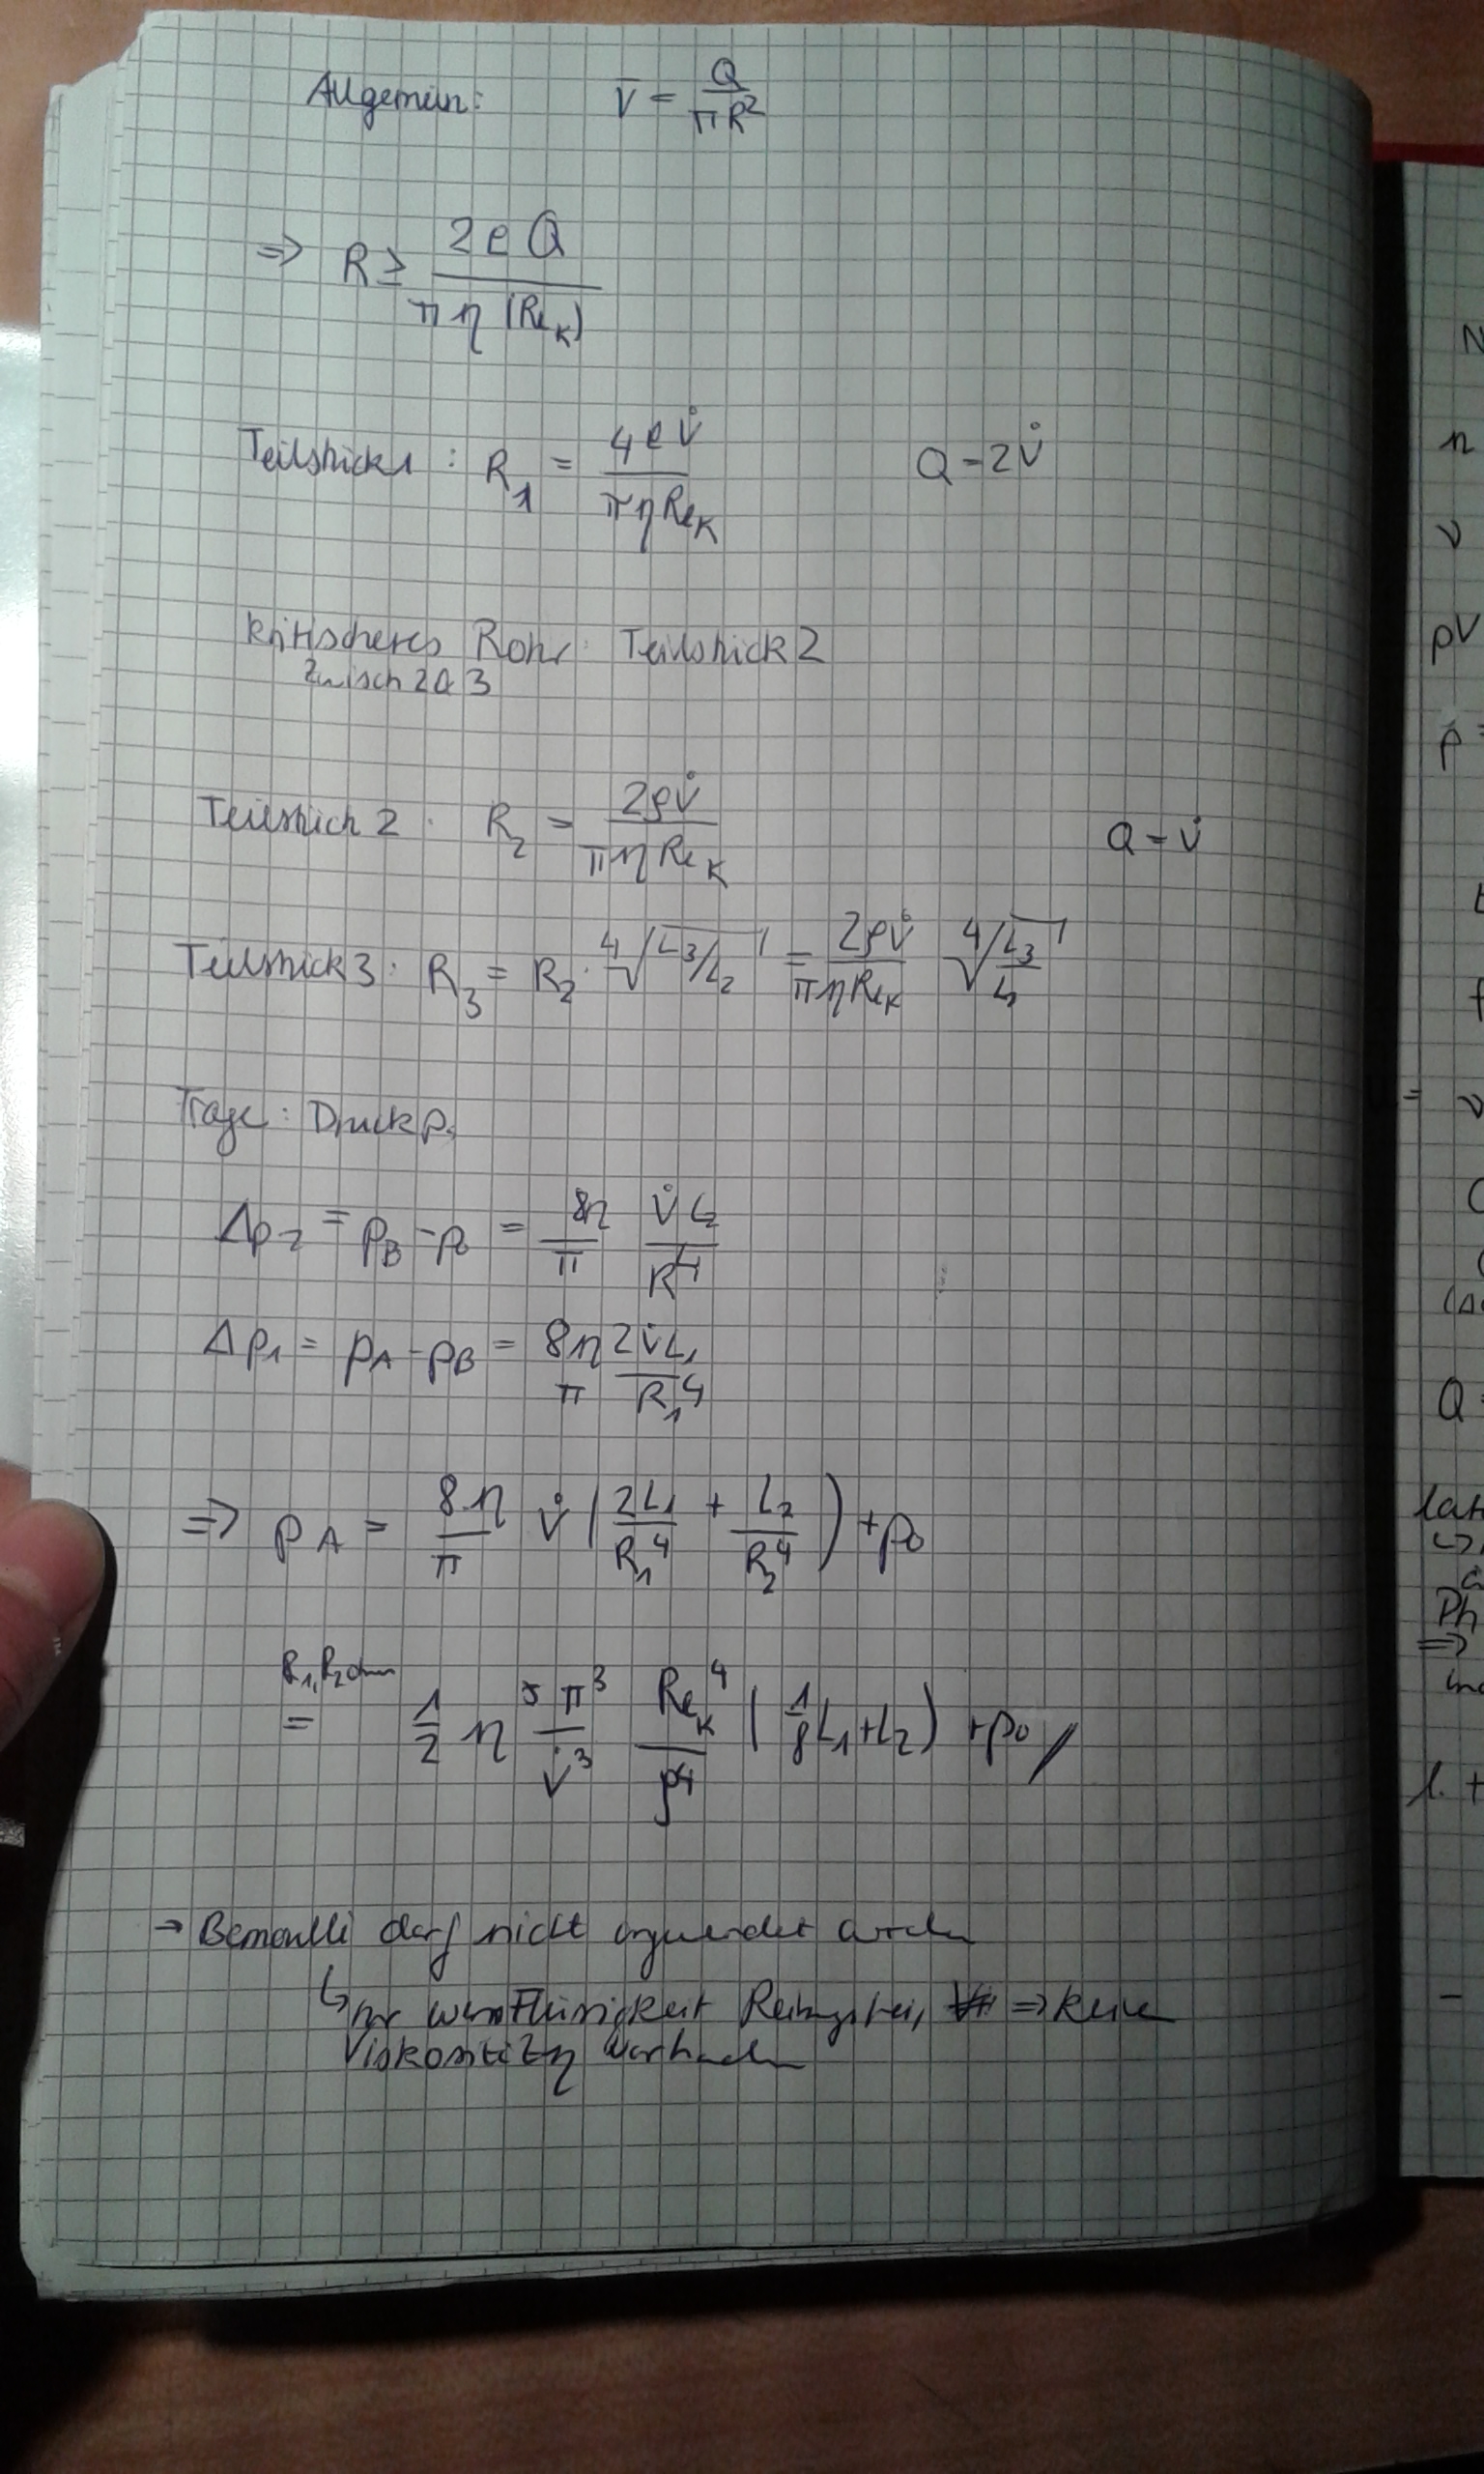 Allgemein: v̄ = Q / πR²
⇒ R ≥ 2ρQ / πη (Re_K)
Teilstück 1 : R₁ = 4ρV̇ / πηRe_K Q = 2V̇
kritischeres Rohr: Teilstück 2
zwisch 2 & 3
Teilstück 2 : R₂ = 2ρV̇ / πηRe_K Q = V̇
Teilstück 3 : R₃ = R₂ · ⁴√(L₃/L₂) = 2ρV̇ / πηRe_K ⁴√(L₃/L₂)
Frage : Druck p₁
Δp₂ = p_B - p₀ = 8η/π V̇L₂/R⁴
Δp₁ = p_A - p_B = 8η/π 2V̇L₁/R₁⁴
⇒ p_A = 8η/π V̇ (2L₁/R₁⁴ + L₂/R₂⁴) + p₀
R₁, R₂
= 1/2 η⁵ π³/V̇³ Re_K⁴/ρ⁴ (1/8 L₁ + L₂) + p₀
→ Bernoulli darf nicht angewendet werden
↳ nur wenn Flüssigkeit Reibungsfrei, ⇒ keine
Viskosität η vorhanden
N
n
ν
pV
p =
f
= ν
Q =
⇒
l. +
-